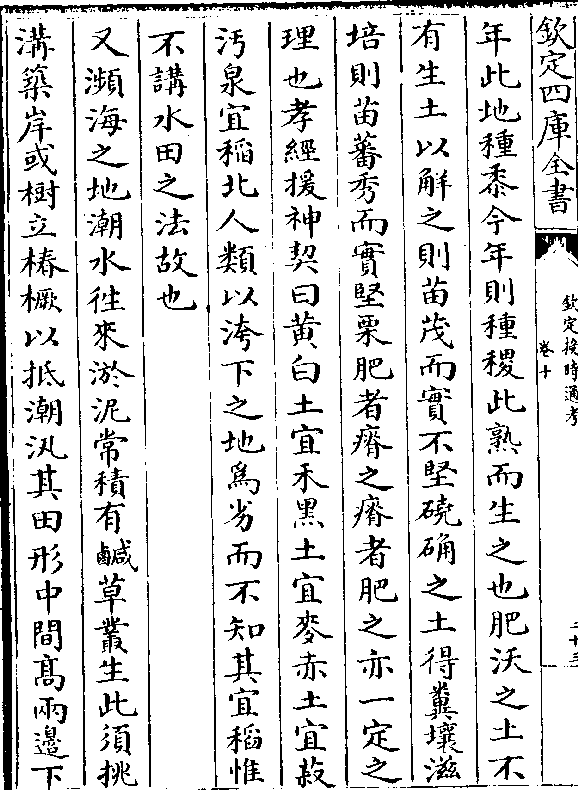 欽定四庫全書
欽定授時通考
卷十
年此地種黍今年則種稷此熟而生之也肥沃之土不
有生土以解之則苗茂而實不堅磽确之土得糞壤滋
培則苗蕃秀而實堅栗肥者瘠之瘠者肥之亦一定之
理也孝經援神契曰黃白土宜禾黑土宜麥赤土宜菽
汚泉宜稻北人類以洿下之地爲劣而不知其宜稻惟
不講水田之法故也
又瀕海之地潮水徃來淤泥常積有鹹草叢生此須挑
溝築岸或樹立樁橛以抵潮汎其田形中間髙兩邉下